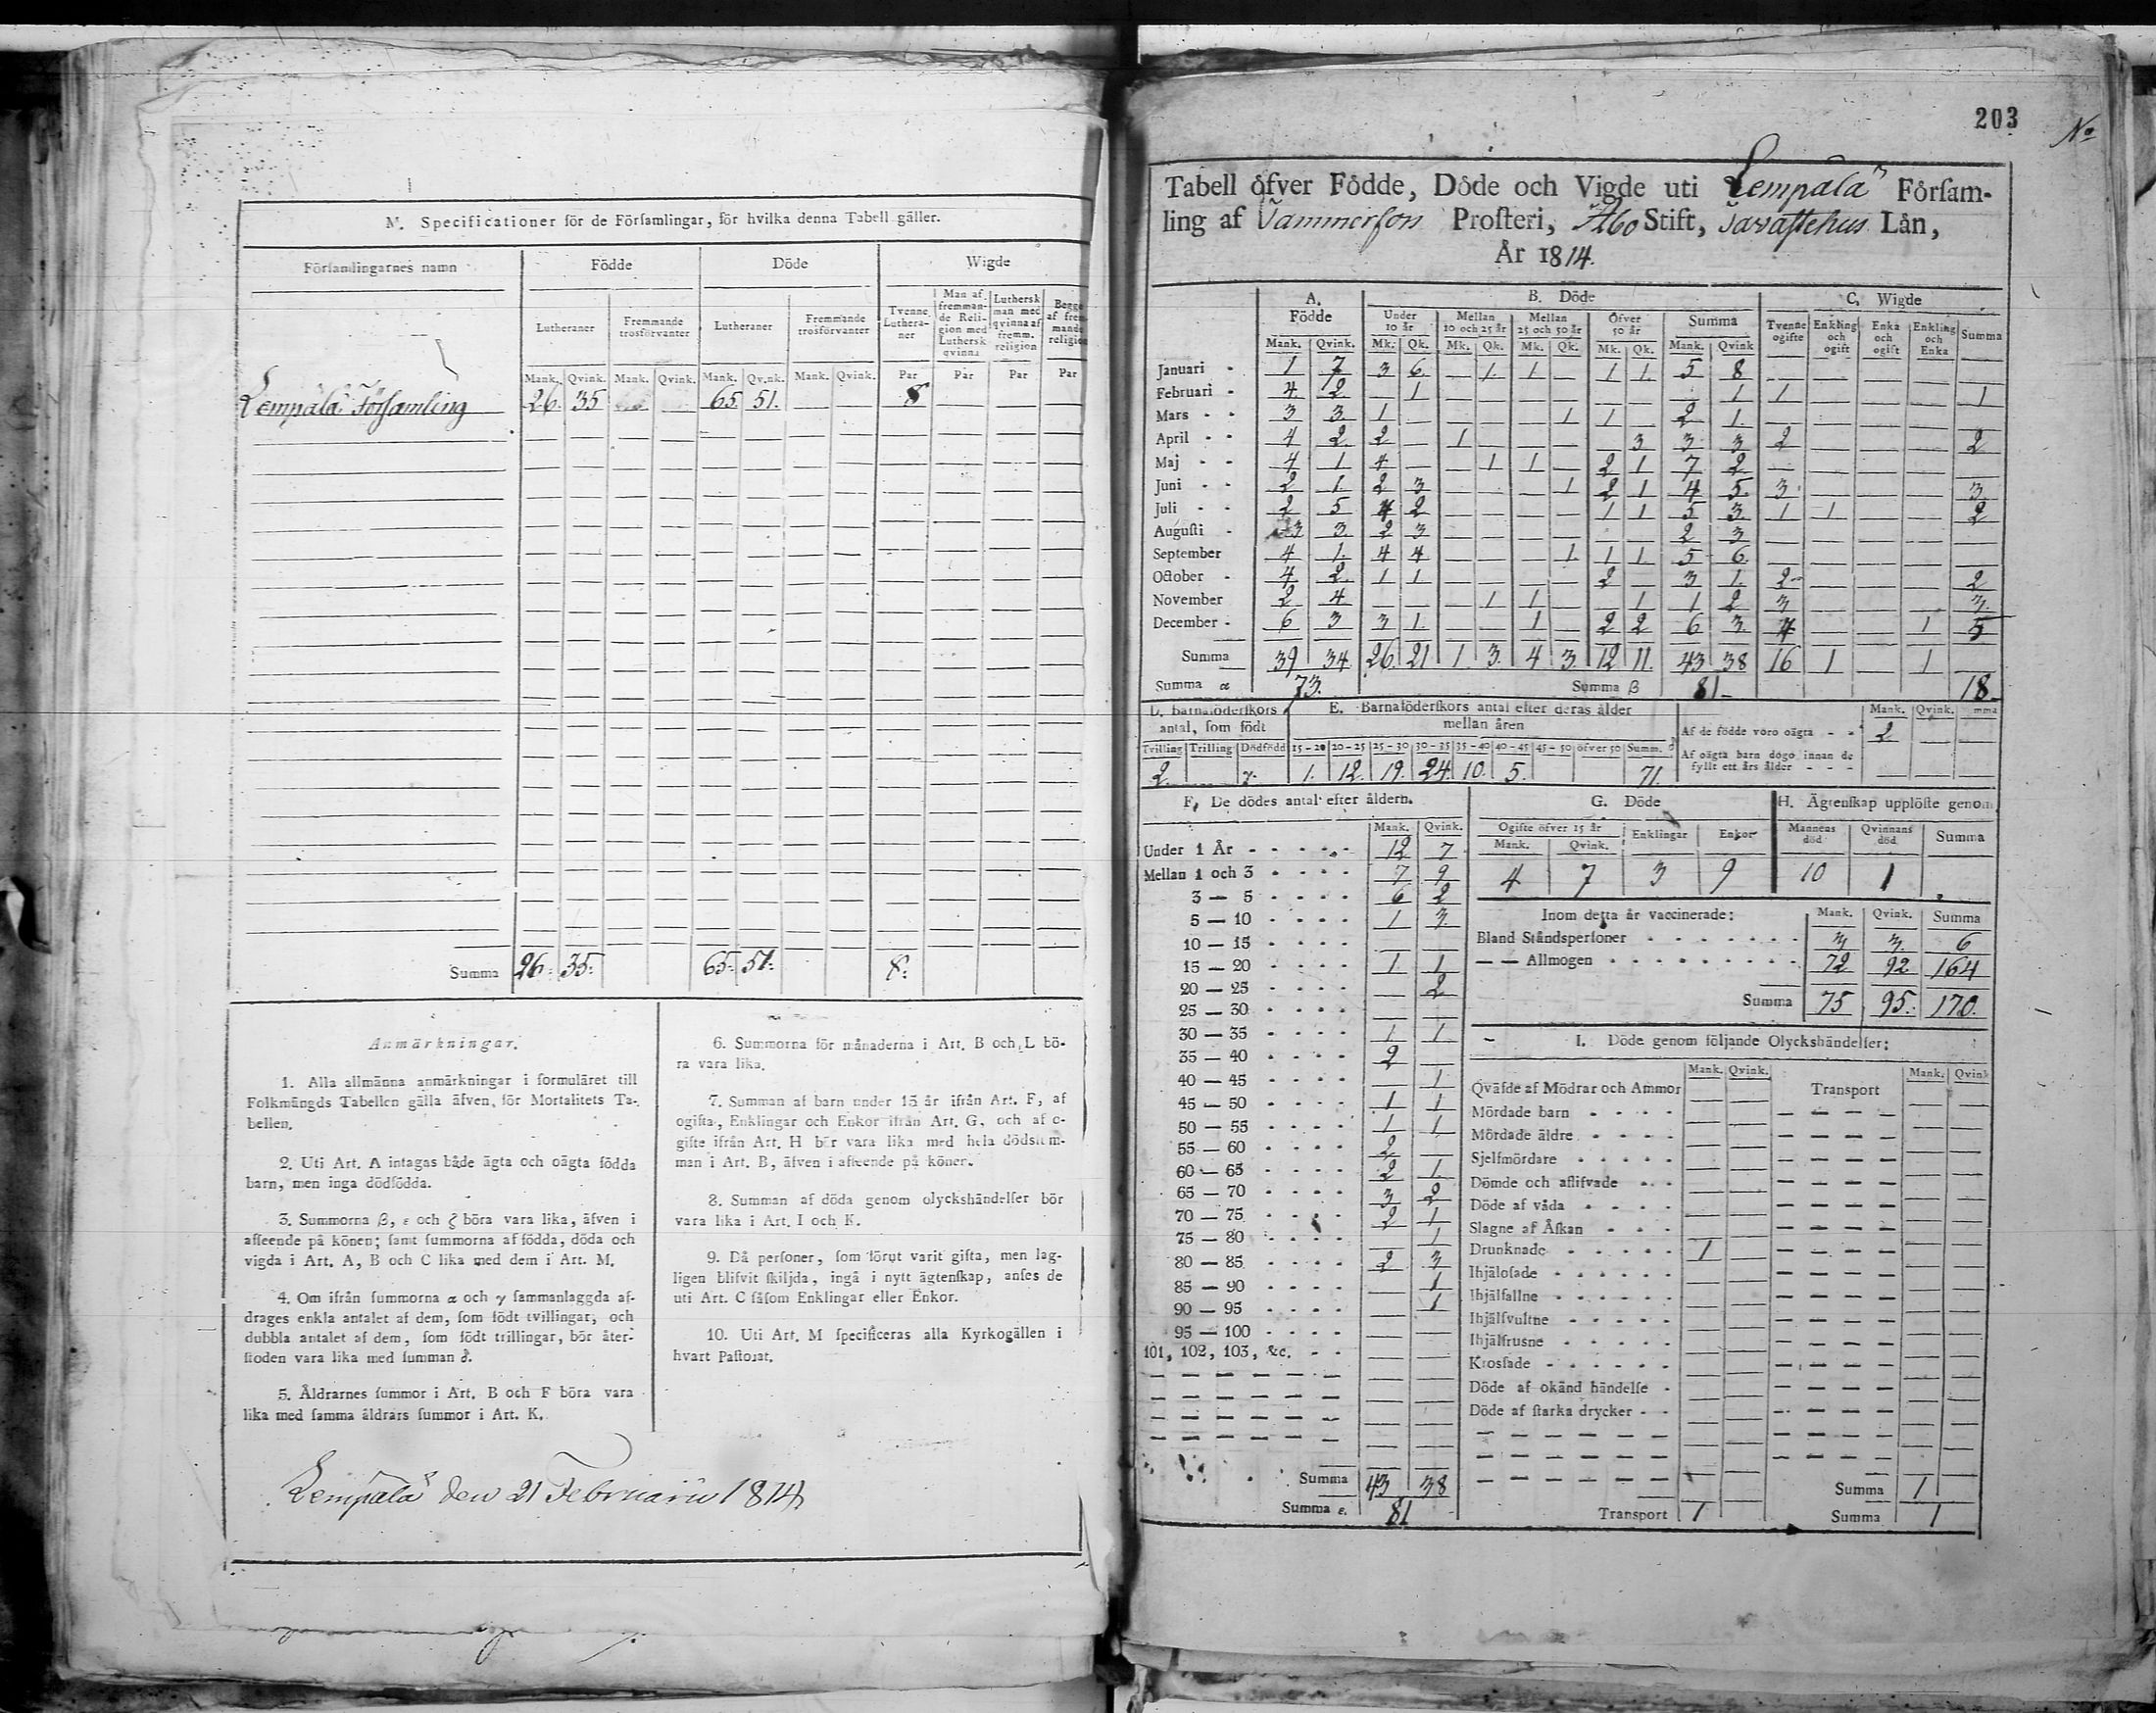 M. Specificationer för de Församlingar, för hvilka denna Tabell gäller.
Församlingarnes namn Födde Döde Wigde
Lutheraner Fremmande trosförvanter Lutheraner Fremmande trosförvanter Tvenne Lutheraner Man af fremmande Religion med Luthersk qvinna Luthersk man med qvinna af fremm. religion Begge af fremmande religion
Mank. Qvink. Mank. Qvink. Mank. Qvink. Mank. Qvink. Par Par Par Par
Lempälä Församling 26. 35 — — 65. 51. — — 8
Summa 26. 35. 65. 51. 8.
Anmärkningar.
1. Alla allmänna anmärkningar i formuläret till
Folkmängds Tabellen gälla äfven för Mortalitets Ta-
bellen.
2. Uti Art. A intagas både ägta och oägta födda
barn, men inga dödfödda.
3. Summorna β, ε och ζ böra vara lika, äfven i
afseende på könen; samt summorna af födda, döda och
vigda i Art. A, B och C lika med dem i Art. M.
4. Om ifrån summorna α och γ sammanlaggda af-
drages enkla antalet af dem, som födt tvillingar, och
dubbla antalet af dem, som födt trillingar, bör åter-
stoden vara lika med summan δ.
5. Åldrarnes summor i Art. B och F böra vara
lika med samma åldrars summor i Art. K.
6. Summorna för månaderna i Art. B och L bö-
ra vara lika.
7. Summan af barn under 15 år ifrån Art. F, af
ogifta, Enklingar och Enkor ifrån Art. G, och af o-
gifte ifrån Art. H bör vara lika med hela dödsum-
man i Art. B, äfven i afseende på könen.
8. Summan af döda genom olyckshändelser bör
vara lika i Art. I och K.
9. Då personer, som förut varit gifta, men lag-
ligen blifvit skiljda, ingå i nytt ägtenskap, anses de
uti Art. C såsom Enklingar eller Enkor.
10. Uti Art. M specificeras alla Kyrkogällen i
hvart Pastorat.
Lempälä den 21 Februarii 1814
203
No
Tabell öfver Födde, Döde och Vigde uti Lempälä Försam-
ling af Tammerfors Prosteri, Åbo Stift, Tavastehus Län,
År 1814.
A. Födde B. Döde C. Wigde
Under 10 år Mellan 10 och 25 år Mellan 25 och 50 år Öfver 50 år Summa Tvenne ogifte Enkling och ogift Enka och ogift Enkling och Enka Summa
Mank. Qvink. Mk. Qk. Mk. Qk. Mk. Qk. Mk. Qk. Mank. Qvink
Januari 1 7 3 6 — 1 1 — 1 1 5 8 — — — —
Februari 4 2 — 1 — — — — — — — 1 1 — — — 1
Mars 3 3 1 — — — — 1 1 — 2 1 — — — —
April 4 2 2 — 1 — — — — 3 3 3 2 — — — 2
Maj 4 1 4 — — 1 1 — 2 1 7 2 — — — —
Juni 2 1 2 3 — — — 1 2 1 4 5 3 — — — 3
Juli 2 5 4 2 — — — — 1 1 5 3 1 1 — — 2
Augusti 3 3 2 3 — — — — — — 2 3 — — — —
September 4 1 4 4 — — — 1 1 1 5 6 — — — —
October 4 2 1 1 — — — — 2 — 3 1 2 — — — 2
November 2 4 — — — 1 1 — — 1 1 2 3 — — — 3
December 6 3 3 1 — — 1 — 2 2 6 3 4 — — 1 5
Summa 39 34 26 21 1 3 4 3 12 11 43 38 16 1 — 1
Summa α 73. Summa β 81 18
D. Barnaföderskors antal, som födt
Tvilling Trilling Dödfödd
2. — γ.
E. Barnaföderskors antal efter deras ålder mellan åren
15-20 20-25 25-30 30-35 35-40 40-45 45-50 öfver 50 Summ. δ
1. 12. 19. 24. 10. 5. 71.
Mank. Qvink. mma
Af de födde voro oägta 2 — —
Af oägta barn dogo innan de fyllt ett års ålder — — —
F. De dödes antal efter åldern.
Mank. Qvink.
Under 1 År 12 7
Mellan 1 och 3 7 9
3 — 5 6 2
5 — 10 1 3
10 — 15 — —
15 — 20 1 1
20 — 25 — 2
25 — 30 — —
30 — 35 1 1
35 — 40 2 —
40 — 45 — 1
45 — 50 1 1
50 — 55 1 1
55 — 60 2 —
60 — 65 2 1
65 — 70 3 2
70 — 75 2 1
75 — 80 — 1
80 — 85 2 3
85 — 90 — 1
90 — 95 — 1
95 — 100 — —
101, 102, 103, &c. — —
Summa 43 38
Summa ε. 81
G. Döde
Ogifte öfver 15 år Enklingar Enkor
Mank. Qvink.
4 7 3 9
H. Ägtenskap upplöste genom
Mannens död Qvinnans död Summa
10 1
Inom detta år vaccinerade: Mank. Qvink. Summa
Bland Ståndspersoner 3 3 6
— — Allmogen 72 92 164
Summa 75 95. 170.
I. Döde genom följande Olyckshändelser:
Mank. Qvink. Mank. Qvink
Qväfde af Mödrar och Ammor — — Transport — —
Mördade barn
Mördade äldre
Sjelfmördare
Dömde och aflifvade
Döde af våda
Slagne af Åskan
Drunknade 1
Ihjälosade
Ihjälfallne
Ihjälsvultne
Ihjälfrusne
Krossade
Döde af okänd händelse
Döde af starka drycker
Summa 1
Transport 1 Summa 1